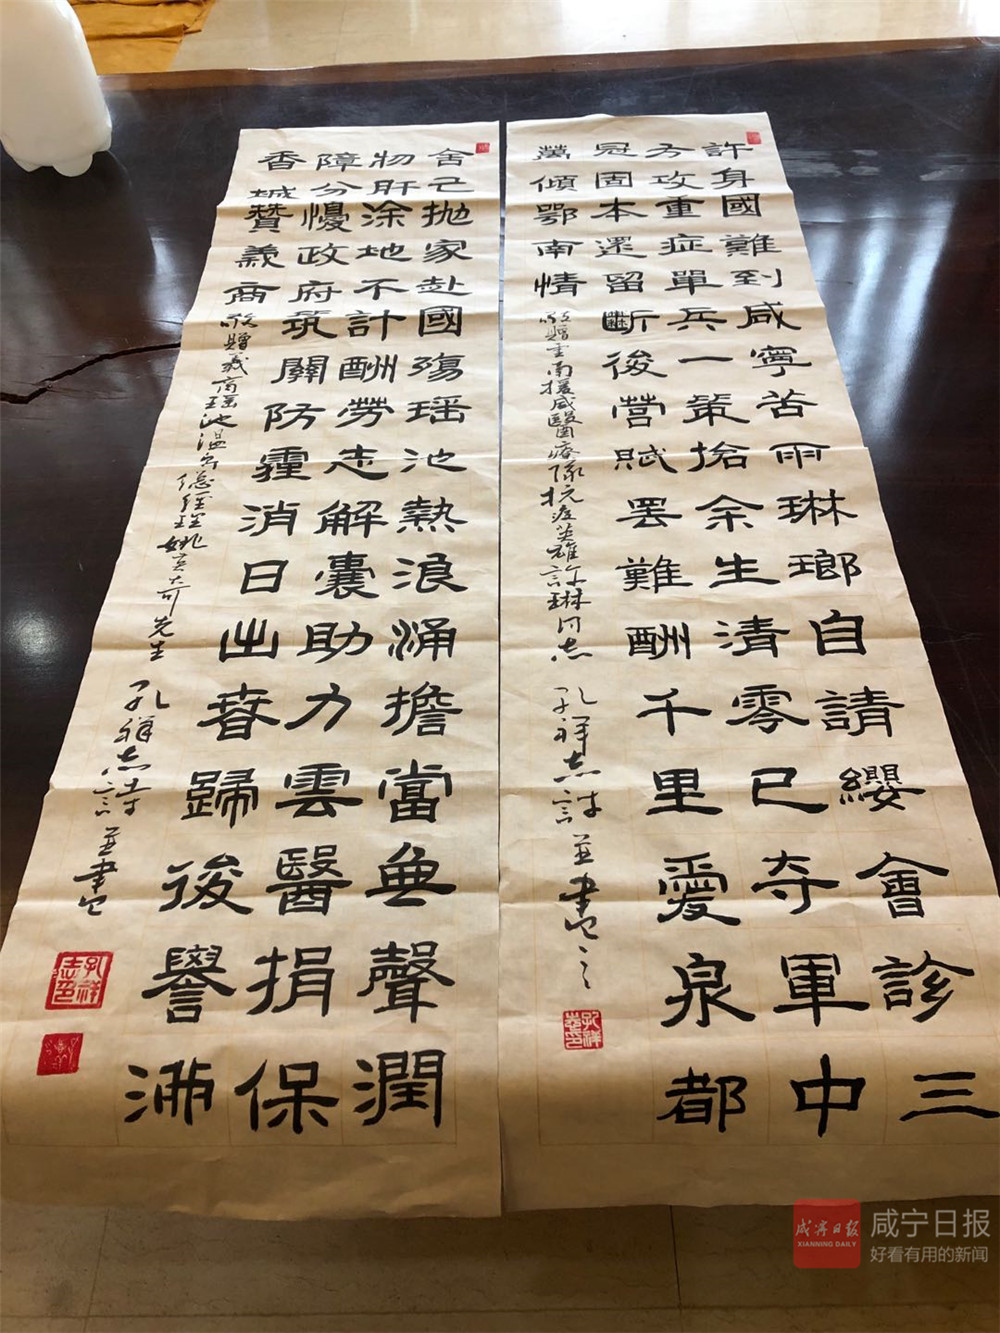 許身國難到咸寧苦雨琳瑯自請纓會診三
方攻重症單兵一策搶余生清零已夺軍中
冠固本還留斷後營賦罢難酬千里愛泉都
萬傾鄂南情
敬贈雲南援咸醫療隊抗疫英雄許琳同志 孔祥志詩並書之
孔祥志印
舍己抛家赴國殤瑶池熱浪涌擔當無聲潤
物肝涂地不計酬勞志解囊助力雲醫捐保
障分懮政府筑關防霾消日出春歸後譽沸
香城贊義商
敬贈義商瑶池温泉總經理姚先生 孔祥志詩並書
孔祥志印
咸宁日报
XIANNING DAILY
咸宁日报
好看有用的新闻